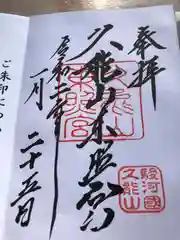 奉拝
久能山東照宮
令和二年
一月
二十五日
駿河國
久能山
ご朱印につ